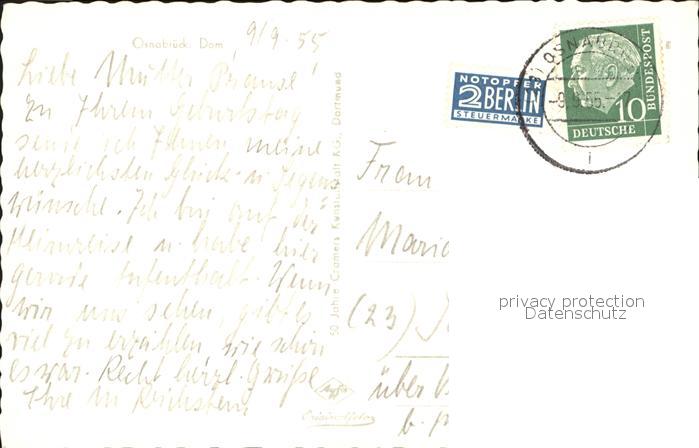 Osnabrück, Dom
9/9.55
Liebe Mutter Preuse!
Zu Ihrem Geburtstag
sende ich Ihnen meine
herzlichsten Glück- u. Segens
wünsche. Ich bin auf der
Heimreise u. habe hier
gerade Aufenthalt. Wenn
wir uns sehen, gibt es
viel zu erzählen, wie schön
es war. Recht herzl. Grüße
Ihre M. Reichstein
50 Jahre Cramers Kunstanstalt KG., Dortmund
NOTOPFER
2 BERLIN
STEUERMARKE
OSNABRÜCK
-9.9.55.-17
i
10
DEUTSCHE
BUNDESPOST
Frau
Maria
(23)
über
b.
Agfa
privacy protection
Datenschutz